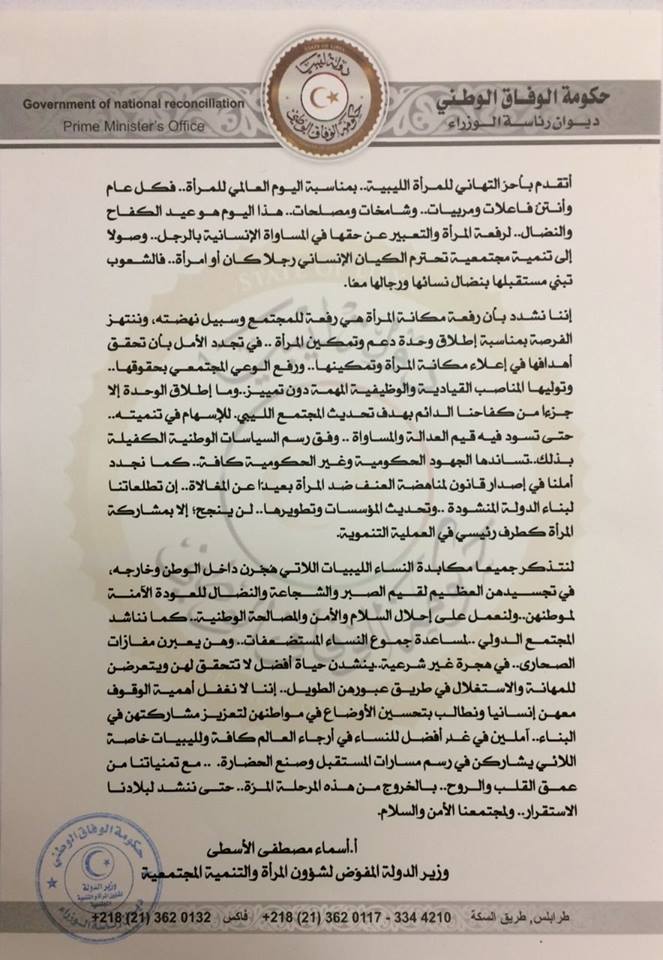 STATE OF LIBYA
دولة ليبيا
حكومة الوفاق الوطني
Government of national reconciliation
Prime Minister's Office
حكومة الوفاق الوطني
ديوان رئاسة الوزراء
أتقدم بأحرّ التهاني للمرأة الليبية.. بمناسبة اليوم العالمي للمرأة.. فكل عام
وأنتنّ فاعلات ومربيات.. وشامخات ومصلحات.. هذا اليوم هو عيد الكفاح
والنضال.. لرفعة المرأة والتعبير عن حقها في المساواة الإنسانية بالرجل.. وصولا
إلى تنمية مجتمعية تحترم الكيان الإنساني رجلا كان أو امرأة.. فالشعوب
تبني مستقبلها بنضال نسائها ورجالها معًا.
إننا نشدد بأن رفعة مكانة المرأة هي رفعة للمجتمع وسبيل نهضته، وننتهز
الفرصة بمناسبة إطلاق وحدة دعم وتمكين المرأة .. في تجدد الأمل بأن تحقق
أهدافها في إعلاء مكانة المرأة وتمكينها.. ورفع الوعي المجتمعي بحقوقها..
وتوليها المناصب القيادية والوظيفية المهمة دون تمييز..وما إطلاق الوحدة إلا
جزءا من كفاحنا الدائم بهدف تحديث المجتمع الليبي. للإسهام في تنميته..
حتى تسود فيه قيم العدالة والمساواة .. وفق رسم السياسات الوطنية الكفيلة
بذلك..تساندها الجهود الحكومية وغير الحكومية كافة.. كما نجدد
أملنا في إصدار قانون لمناهضة العنف ضد المرأة بعيدًا عن المغالاة.. إن تطلعاتنا
لبناء الدولة المنشودة ..وتحديث المؤسسات وتطويرها.. لن ينجح؛ إلا بمشاركة
المرأة كطرف رئيسي في العملية التنموية.
لنتذكر جميعا مكابدة النساء الليبيات اللاتي هجرن داخل الوطن وخارجه،
في تجسيدهن العظيم لقيم الصبر والشجاعة والنضال للعودة الآمنة
لموطنهن..ولنعمل على إحلال السلام والأمن والمصالحة الوطنية.. كما نناشد
المجتمع الدولي ..لمساعدة جموع النساء المستضعفات.. وهن يعبرن مفازات
الصحارى.. في هجرة غير شرعية.ينشدن حياة أفضل لا تتحقق لهن ويتعرضن
للمهانة والاستغلال في طريق عبورهن الطويل.. إننا لا نغفل أهمية الوقوف
معهن إنسانيا ونطالب بتحسين الأوضاع في مواطنهن لتعزيز مشاركتهن في
البناء.. آملين في غد أفضل للنساء في أرجاء العالم كافة ولليبيات خاصة
اللائي يشاركن في رسم مسارات المستقبل وصنع الحضارة. .. مع تمنياتنا من
عمق القلب والروح.. بالخروج من هذه المرحلة المرّة.. حتى ننشد لبلادنا
الاستقرار.. ولمجتمعنا الأمن والسلام.
أ.أسماء مصطفى الأسطى
وزير الدولة المفوّض لشؤون المرأة والتنمية المجتمعية
حكومة الوفاق الوطني
وزير الدولة
لشؤون المرأة والتنمية
المجتمعية
ديوان رئاسة الوزراء
طرابلس, طريق السكة +218 (21) 362 0117 - 334 4210 فاكس +218 (21) 362 0132